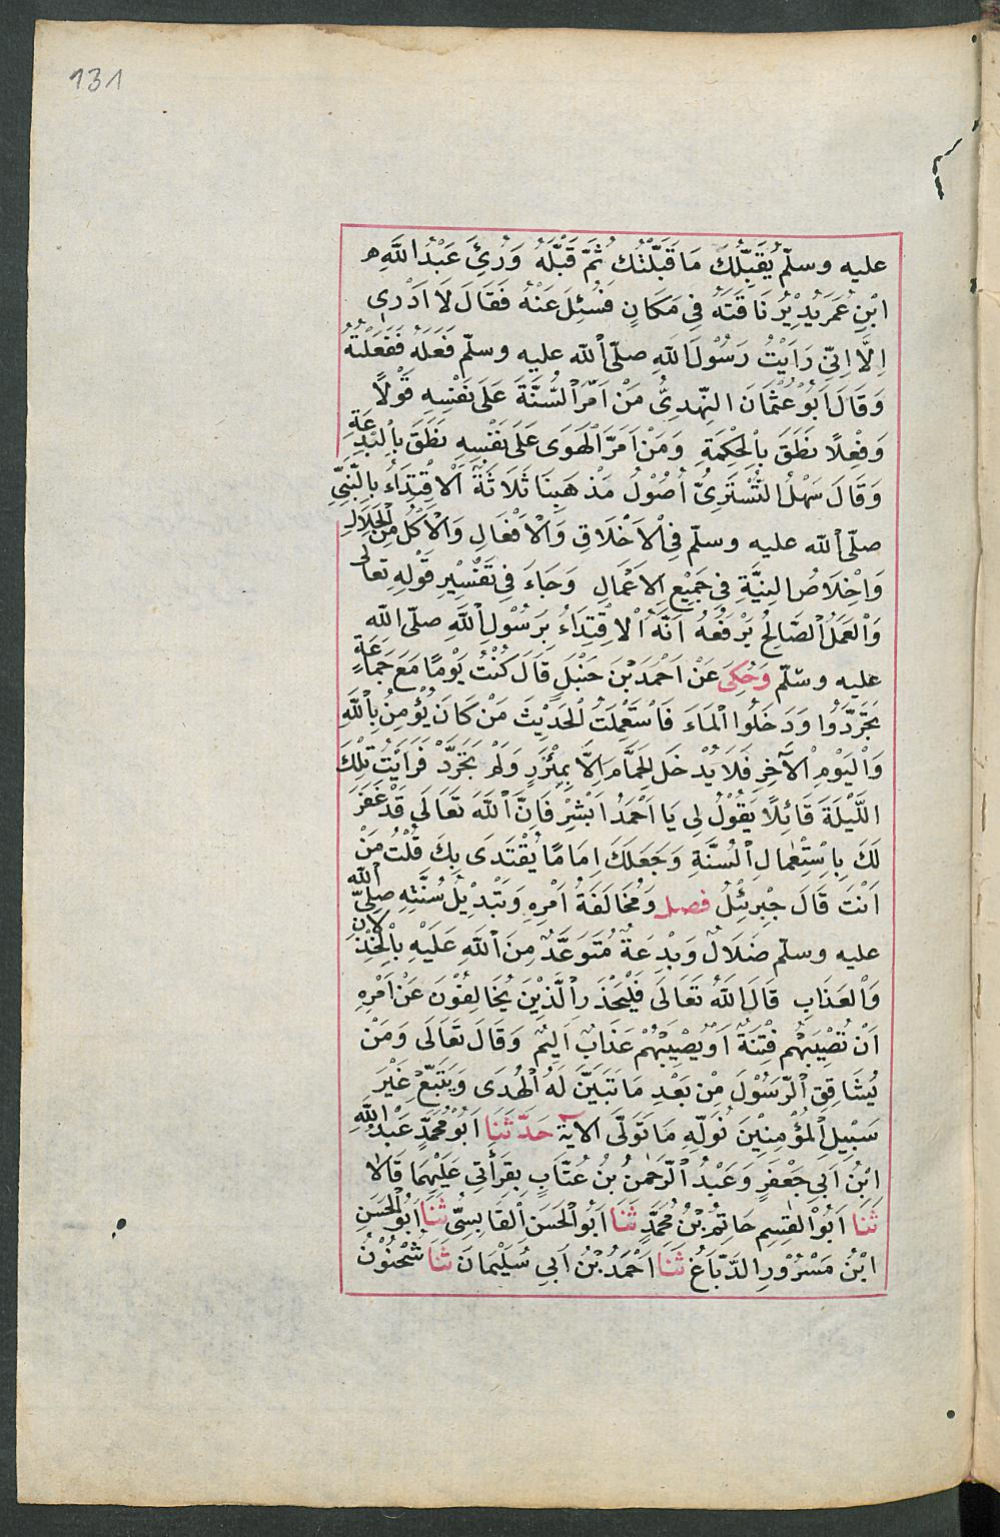 131
عليه وسلّم يُقَبِّلُكَ مَا قَبَّلْتُكَ ثُمَّ قَبَّلَهُ وَرُئِيَ عَبْدُ اللَّهِ
ابْنِ عُمَرَ يُدِيْرُ نَاقَتَهُ فِي مَكَانٍ فَسُئِلَ عَنْهُ فَقَالَ لَا اَدْرِي
اِلَّا اِنّي رَاَيْتُ رَسُوْلَ اللّهِ صلّى اللّه عليه وسلّم فَعَلَهُ فَفَعَلْتُهُ
وَقَالَ اَبُوْ عُثْمَانَ النَّهْدِيُّ مَنْ اَمَّرَ السُّنَّةَ عَلَى نَفْسِهِ قَوْلًا
وَفِعْلًا نَطَقَ بِالْحِكْمَةِ وَمَنْ اَمَرَّ الْهَوَى عَلَى نَفْسِهِ نَطَقَ بِالْبِدْعَةِ
وَقَالَ سَهْلُ التُّسْتَرِيُّ اُصُوْلُ مَذْهَبِنَا ثَلَاثَةٌ اَلْاِقْتِدَاُء بِالنَّبِيِّ
صلّى اللّه عليه وسلّم فِي الْاَخْلَاقِ وَالْاَفْعَالِ وَالْاَكْلُ مِنَ الْحَلَالِ
وَاِخْلَاصُ النِيَّةِ فِي جَمِيْعِ الاَعْمَالِ وَجَاءَ فِي تَفْسِيْرِ قَوْلِهِ تعالى
وَالْعَمَلُ الصَّالِحُ يَرْفَعُهُ اَنَّهُ الْاِقْتِدَاءُ بِرَسُوْلِ اللَّهِ صلّى اللّه
عليه وسلّم وَحُكِيَ عَنْ اَحْمَدَ بْنَ حَنْبَلٍ قَالَ كُنْتُ يَوْمًا مَعَ جَمَاعَةٍ
تَجَرَّدُوا وَدَخَلُوا الْمَاءَ فَاسْتَعْمَلْتُ الْحَدِيْثَ مَنْ كَانَ يُؤْمِنُ بِاللَّهِ
وَالْيَوْمِ الْآخِرِ فَلَا يُدْخَلِ الْحَمَّامَ اِلَّا بِمِئْزَرٍ وَلَمْ تَجَرَّدْ فَرَاَيْتُ تِلْكَ
اللَّيْلَةَ قَائِلًا يَقُوْلُ لِي يَا اَحْمَدُ اَبْشِرْ فَاِنَّ اللَّهَ تَعَالَى قَدْ غَفَرَ
لَكَ بِاِسْتِعْمَالِ السُّنَّةِ وَجَعَلَكَ اِمَامًا يُقْتَدَى بِكَ قُلْتُ مَنْ
اَنْتَ قَالَ جِبْرِئِلُ فصل وَمُخَالَفَةُ اَمْرِهِ وَتَبْدِيْلُ سُنَّتِهِ صلّى اللّه
عليه وسلّم ضَلَالٌ وَبِدْعَةٌ مُتَوَعَّدٌ مِنَ اللّهِ عَلَيْهِ بِالْخِذْلَانِ
وَالْعَذَابِ قَالَ اللَّهُ تَعَالَى فَلْيَحْذَرِ الَّذِيْنَ يُخَالِفُوْنَ عَنْ اَمْرِهِ
اَنْ تُصِيْبَهُمْ فِتْنَةٌ اَوْ يُصِيْبَهُمْ عَذَابٌ اَلِيْمٌ وَقَالَ تَعَالَى وَمَنْ
يُشَاقِقِ الرَّسُوْلَ مِنْ بَعْدِ مَا تَبَيَّنَ لَهُ الْهُدَى وَيَتَّبِعْ غَيْرَ
سَبِيْلِ الْمُؤْمِنِيْنَ نُوَلِّهِ مَا تَوَلَّى الآيَةَ حَدّثَنَا اَبُوْ مُحَمَّدٍ عَبْدُ اللَّهِ
ابْنُ اَبِي جَعْفَرٍ وَعَبْدُ الرَّحْمٰنِ بْنُ عَتَّابٍ بِقِرَأَتِي عَلَيْهِمَا قَالَا
ثَنَا اَبُوْ الْقٰسِمِ حَاتِمُ بْنُ مُحَمَّدٍ ثَنَا اَبُو الْحَسَنِ الْقَابِسِيُّ ثَنَا اَبُو الْحَسَنِ
ابْنُ مَسْرُوْرِ الدَّبَّاغُ ثَنَا اَحْمَدُ بْنُ اَبِي سُلَيْمَانَ ثَنَا سُحْنُوْنُ